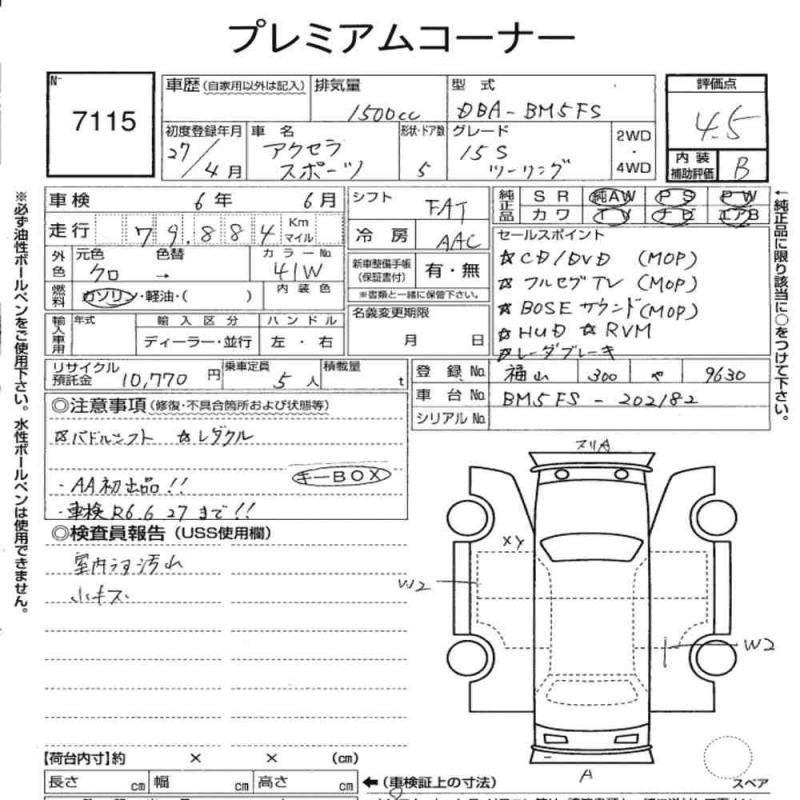 プレミアムコーナー
№ 7115
車歴 (自家用以外は記入) 排気量 1500cc 型式 DBA-BM5FS
評価点 4.5
初度登録年月 27/4月 車名 アクセラ スポーツ 形状・ドア数 5 グレード 15S ツーリング 2WD・4WD
内装補助評価 B
車検 6年 6月 シフト FAT
純正品 SR 純AW PS PW
カワ TV ナビ エアB
走行 79,884 Km マイル 冷房 AAC
セールスポイント
☆CD/DVD (MOP)
☆フルセグTV (MOP)
☆BOSEサウンド(MOP)
☆HUD ☆RVM
☆レーダブレーキ
外色 元色 クロ 色替 → カラーNo. 41W
新車整備手帳(保証書付) 有・無
※書類と一緒に保管下さい。
燃料 ガソリン・軽油・( ) 内装色
名義変更期限 月 日
輸入車用 年式 輸入区分 ハンドル
ディーラー・並行 左・右
リサイクル預託金 10,770円 乗車定員 5人 積載量 t
登録No. 福山 300 や 9630
車台No. BM5FS-202182
シリアルNo.
◎注意事項 (修復・不具合箇所および状態等)
☆パドルシフト ☆レダクル
・AA初出品!! キーBOX
・車検R6.6.27まで!!
◎検査員報告 (USS使用欄)
室内 汚れ
小キズ
スリA
XY
W2
W2
A
スペア
【荷台内寸】約 × × (cm)
長さ cm 幅 cm 高さ cm
←(車検証上の寸法)
※必ず油性ボールペンをご使用下さい。水性ボールペンは使用できません。
←純正品に限り該当に○をつけて下さい。